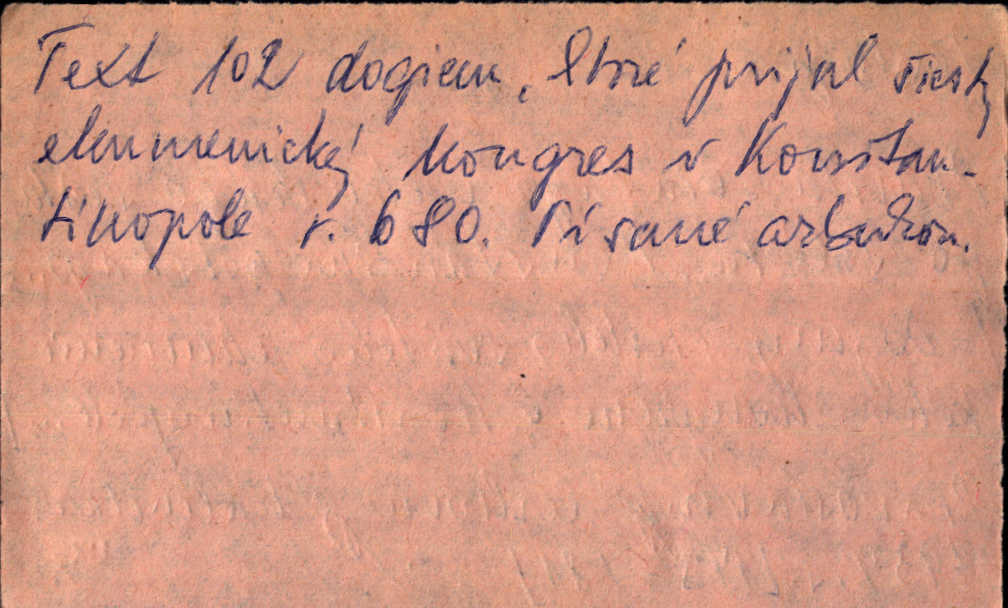 Text 102 dogiem, ktoré prijal šiesty
ekumenický kongres v Konštan-
tinopole r. 680. Písané azbukou.